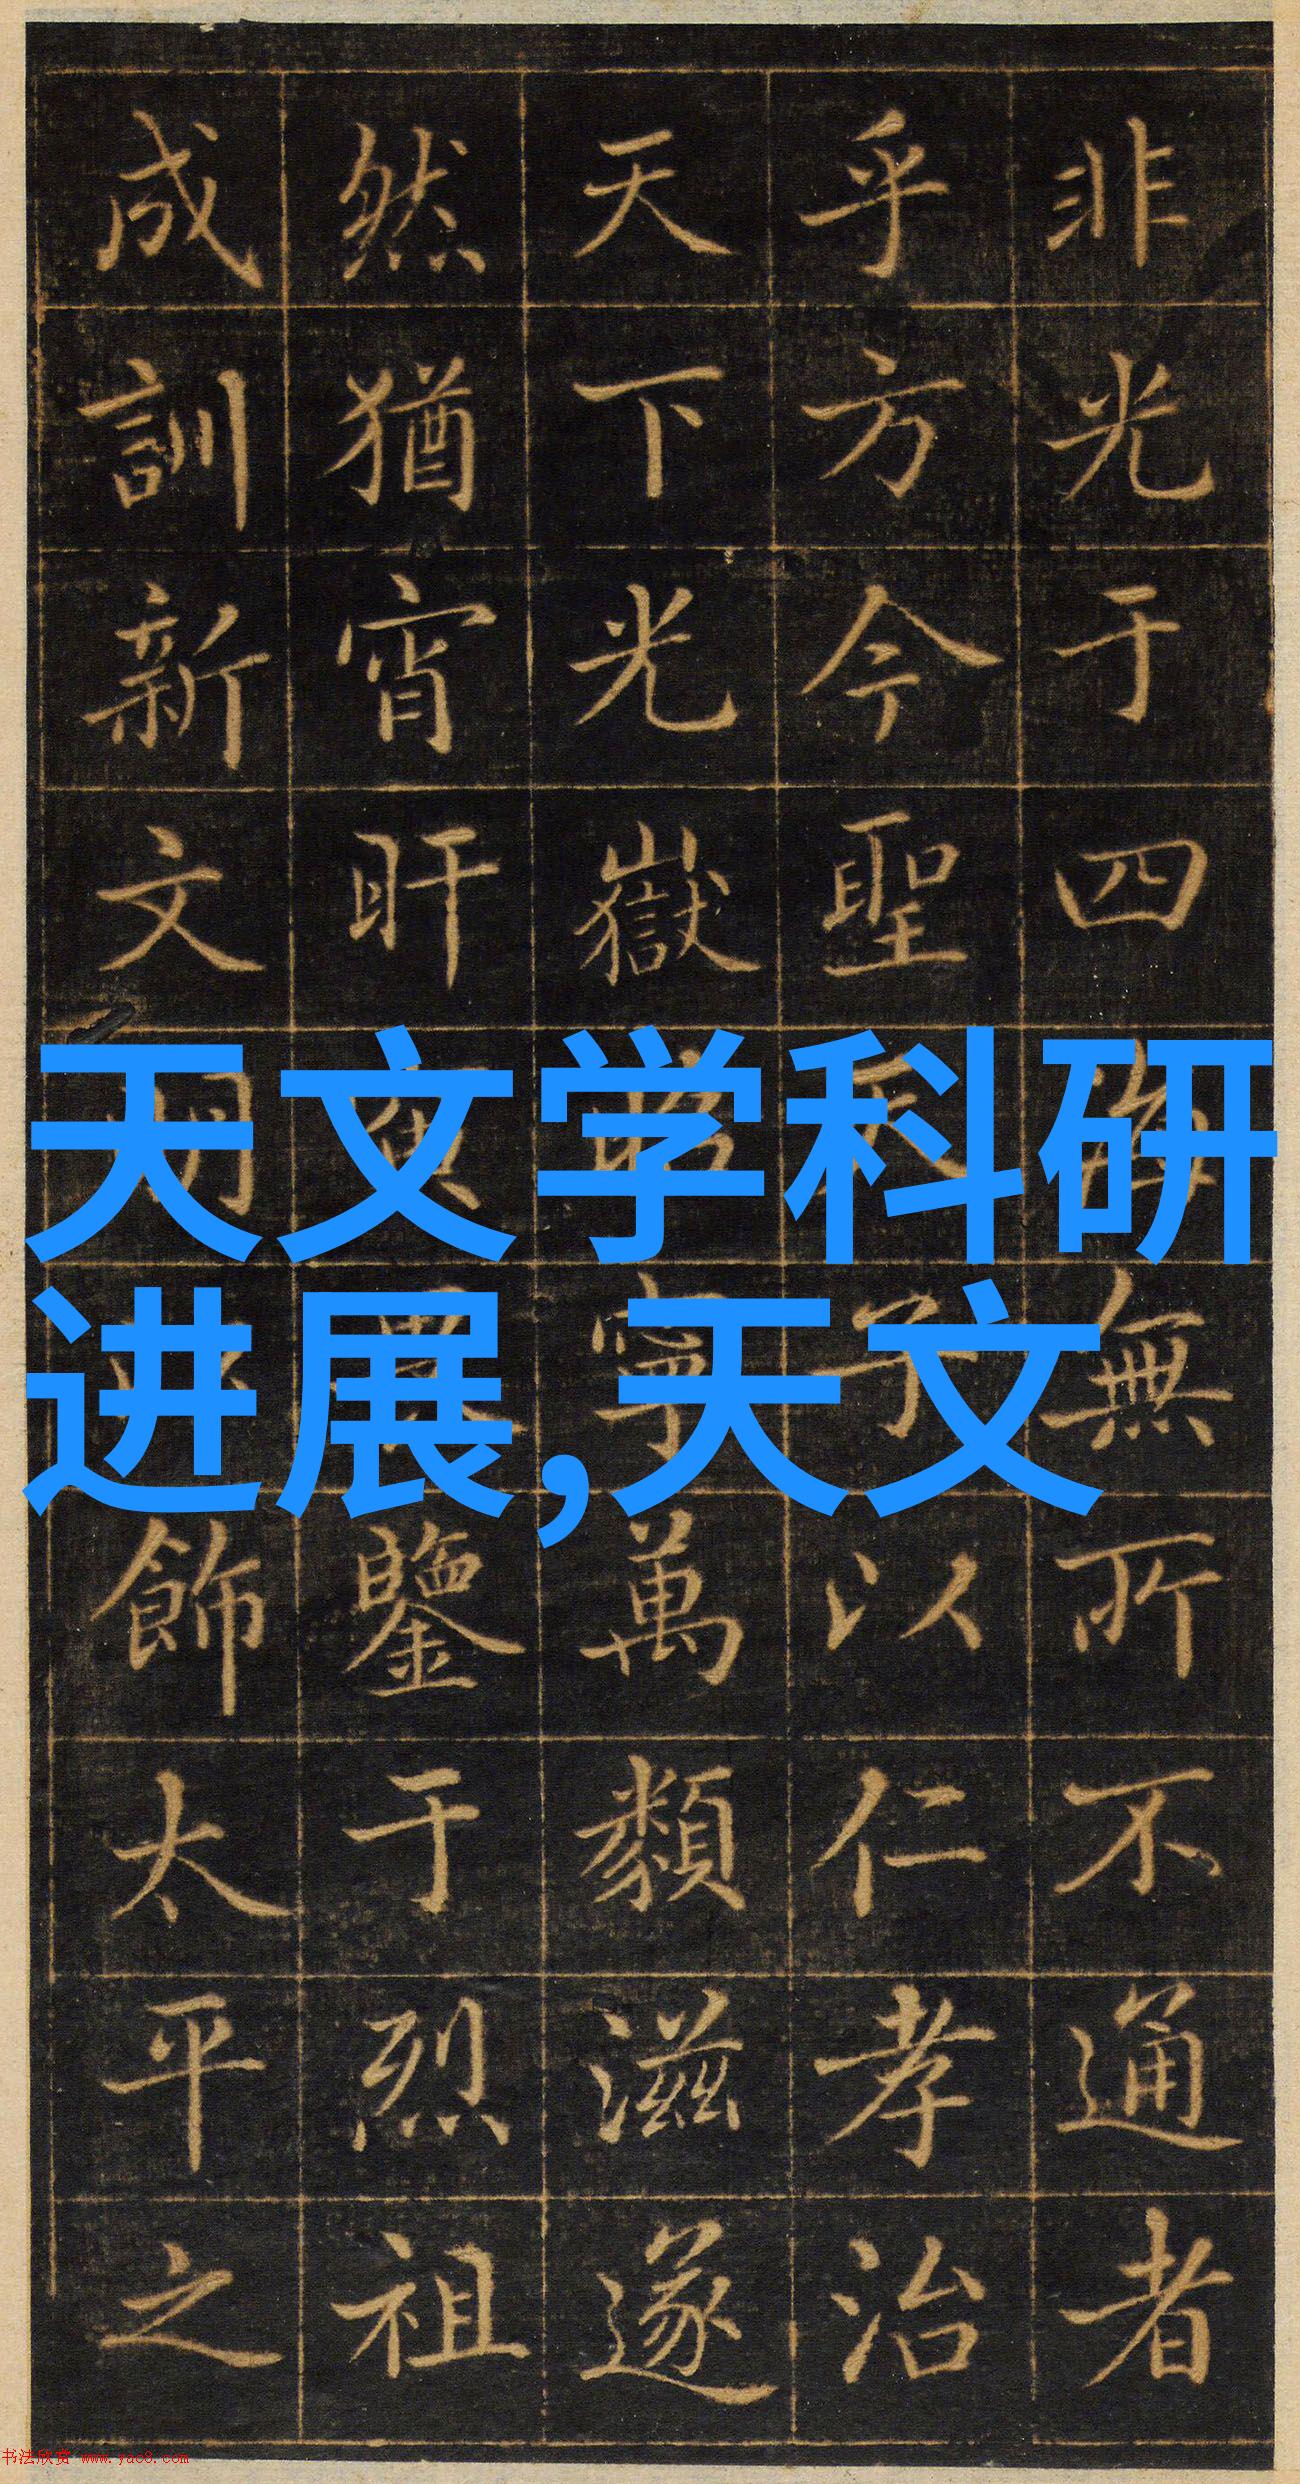 非光于四海無所不通者
乎方今聖天子以仁孝治
天下光嶽寧萬類滋遂
然猶宵旰鑒于烈祖
成訓新文明飾太平之
天文学科研
进展,天文
书法欣赏 www.yac8.com